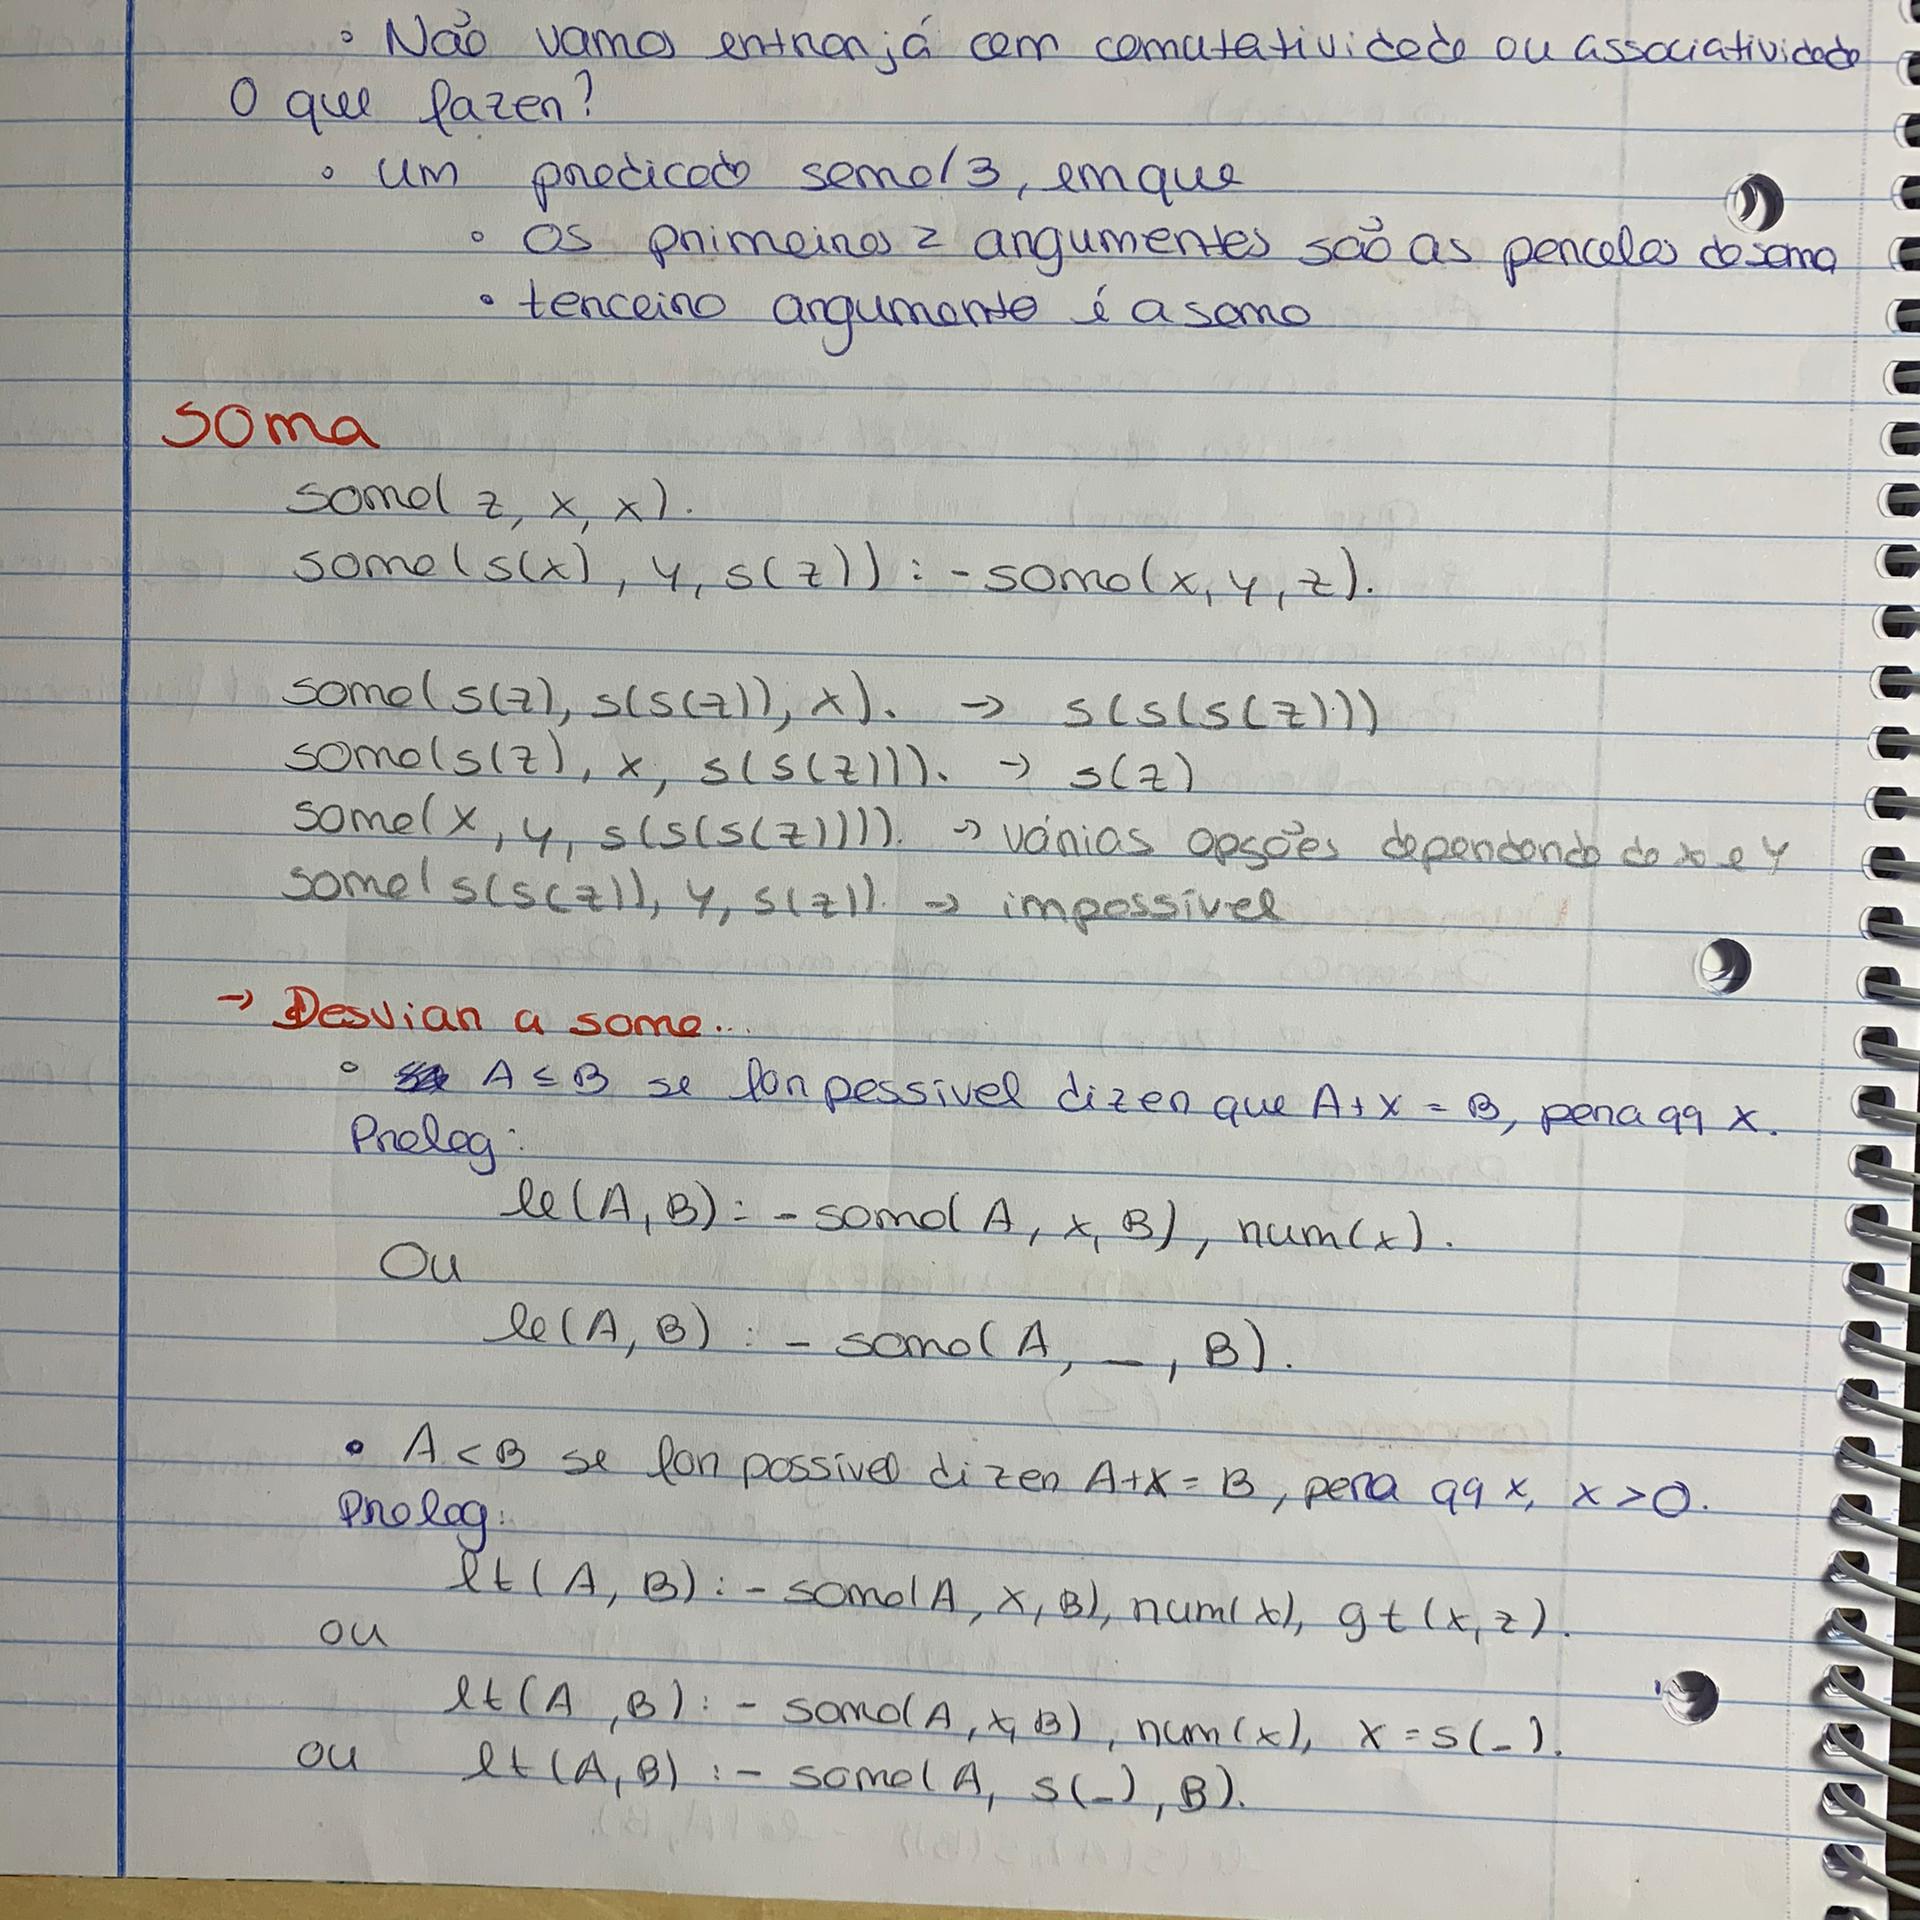 ◦ Não vamos entrar já com comutatividade ou associatividade
O que fazer?
◦ um predicado soma/3, em que
◦ os primeiros 2 argumentos são as parcelas da soma
• terceiro argumento é a soma
Soma
soma(z, x, x).
soma(s(x), y, s(z)) :- soma(x, y, z).
soma(s(z), s(s(z)), x). → s(s(s(z)))
soma(s(z), x, s(s(z))). → s(z)
soma(x, y, s(s(s(z)))). → várias opções dependendo do x e y
soma(s(s(z)), y, s(z)). → impossível
→ Desviar a soma...
◦ A ≤ B se for possível dizer que A+X = B, para qq X.
Prolog:
le(A, B) :- soma(A, x, B), num(x).
Ou
le(A, B) :- soma(A, _, B).
• A < B se for possível dizer A+X = B, para qq x, x > 0.
Prolog:
lt(A, B) :- soma(A, x, B), num(x), gt(x, z).
ou
lt(A, B) :- soma(A, x, B), num(x), x = s(_).
ou lt(A, B) :- soma(A, s(_), B).